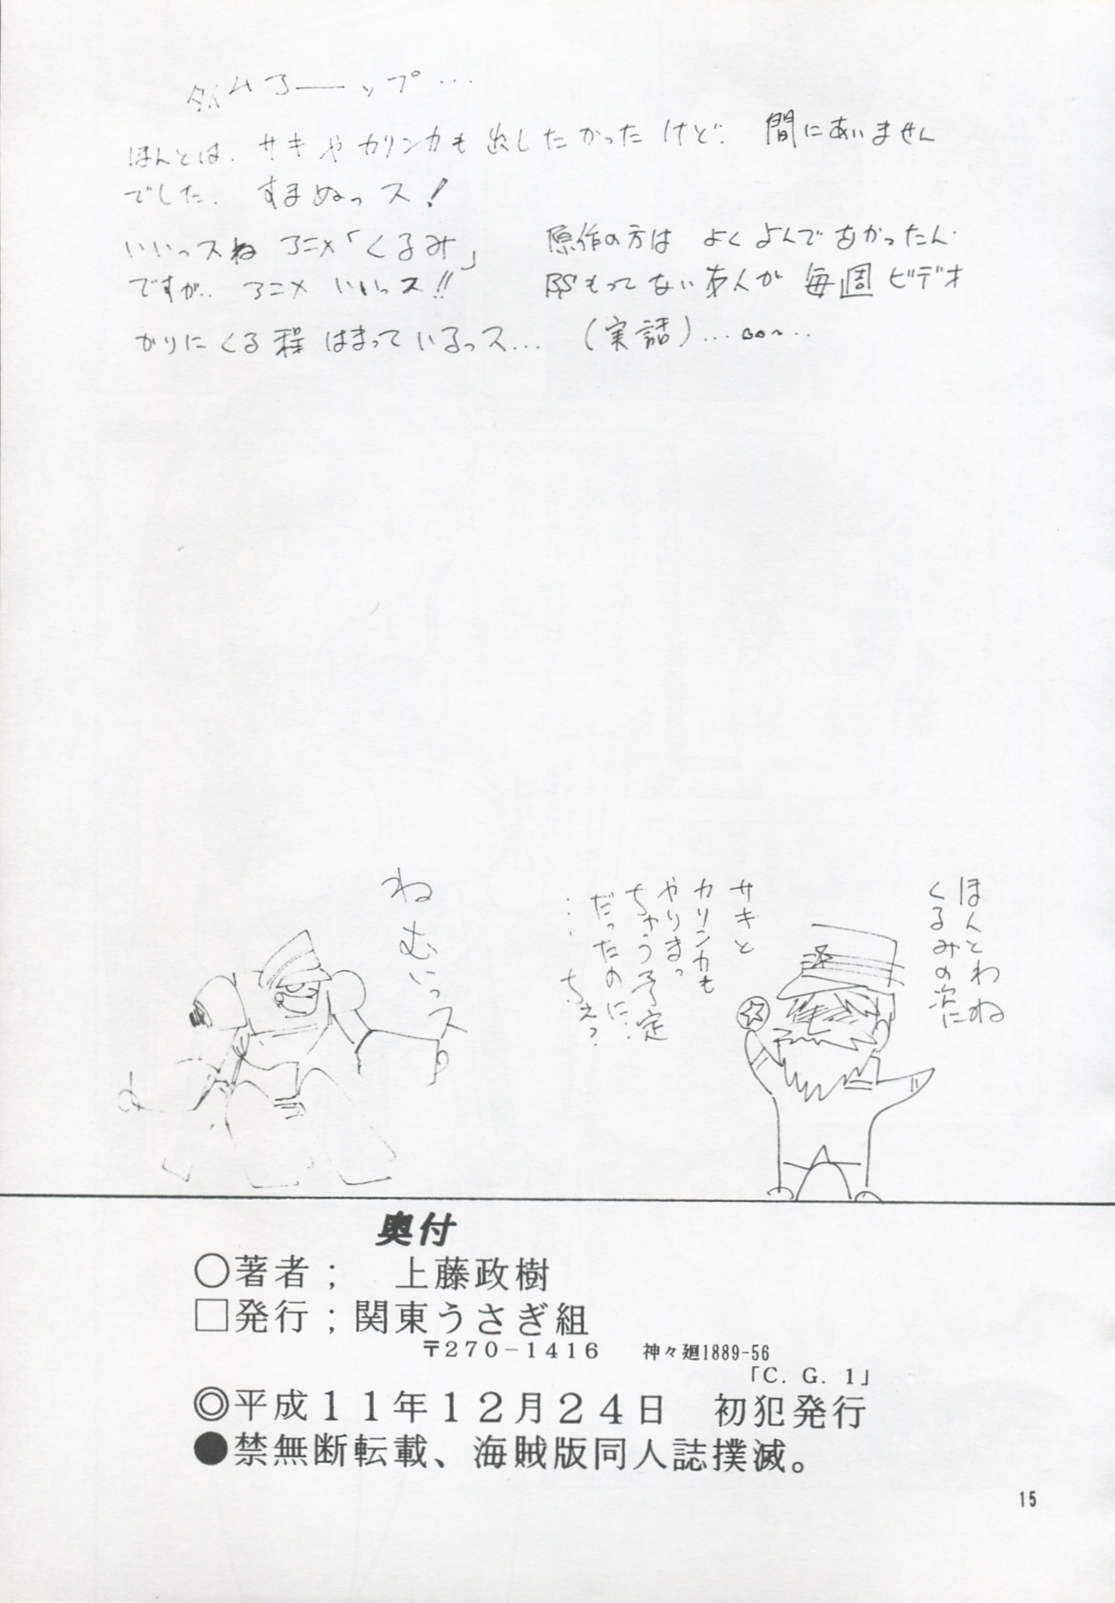 タイムアーップ…
ほんとは、サキやカリンカも出したかったけど、間にあいません
でした、すまぬっス!
いいっスね アニメ「くるみ」 原作の方は よくよんでなかったん
ですが、アニメ いいっス!! BSもってない友人が 毎週ビデオ
かりにくる程 はまっているっス… (実話)…
ほんとわね
くるみの次に
サキと
カリンカも
やりまっ
ちゃう予定
だったのに…
…ちぇっ
ねむいっス
奥付
○著者; 上藤政樹
□発行;関東うさぎ組
〒270-1416 神々廻1889-56
「C. G. 1」
◎平成11年12月24日 初犯発行
●禁無断転載、海賊版同人誌撲滅。
15